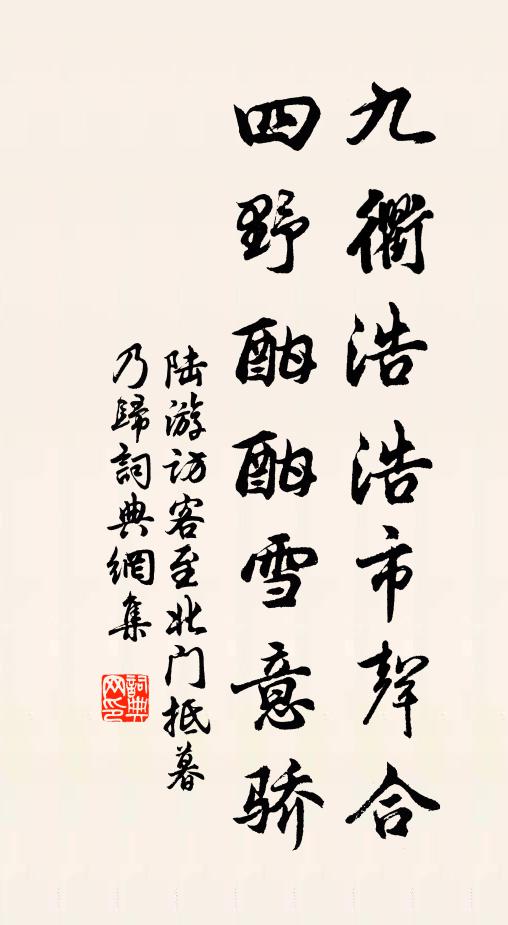 九衢浩浩市聲合
四野酣酣雪意骄
陆游访客至北门抵暮
乃歸詞典網集
詞典网印